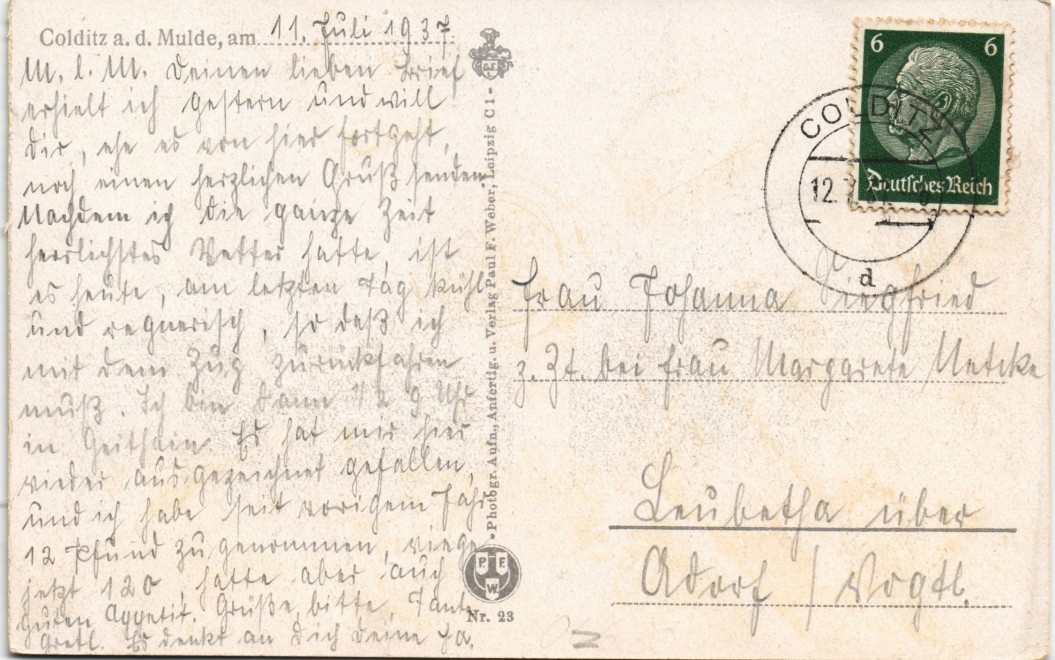 Colditz a. d. Mulde, am 11. Juli 1937.
M. l. M. Deinen lieben Brief
erhielt ich gestern und will
Dir, ehe es von hier fortgeht,
noch einen herzlichen Gruß senden.
Nachdem ich die ganze Zeit
herrlichstes Wetter hatte, ist
es heute, am letzten Tag kühl
und regnerisch, so daß ich
mit dem Zug zurückfahren
muß. Ich bin dann 9 Uhr
in Geithain. Es hat mir hier
wieder ausgezeichnet gefallen,
und ich habe seit vorigem Jahr
12 Pfund zugenommen, wiege
jetzt 120, hatte aber auch
guten Appetit. Grüße, bitte, Tante
Gretl. Es denkt an Dich Deine
Photogr. Aufn., Anfertig. u. Verlag Paul F. Weber, Leipzig C 1
PFW
Nr. 23
6 6
Deutsches Reich
COLDITZ
12. 7.
d
Frau Johanna Siegfried
z. Zt. bei Frau Margarete Metzke
Leubetha über
Adorf / Vogtl.